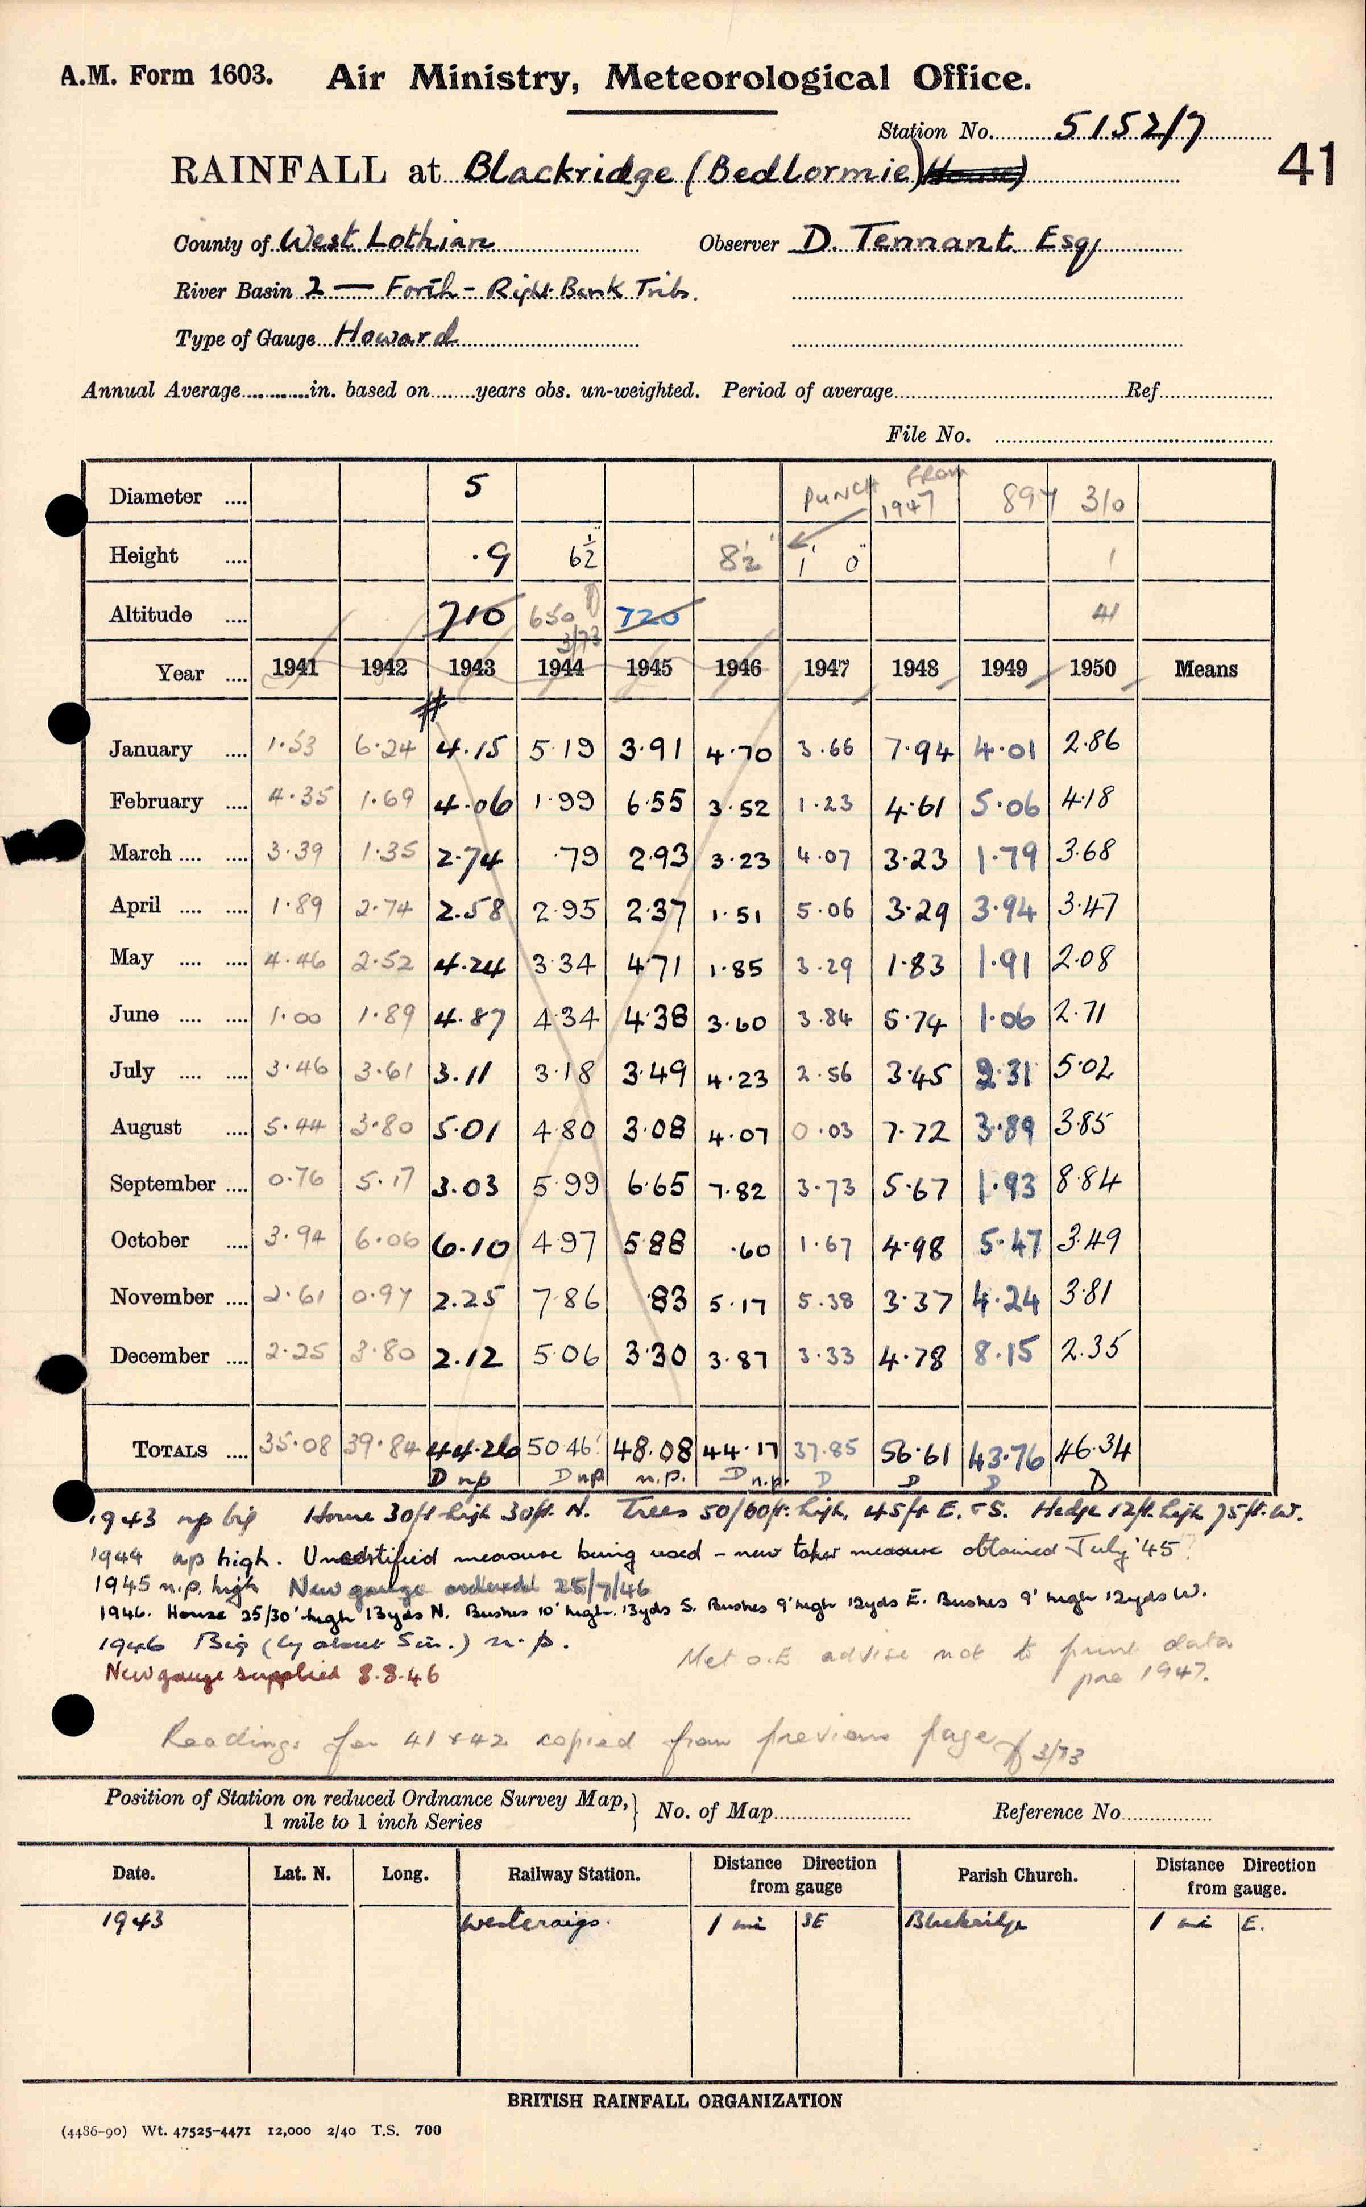 A.M. Form 1603. Air Ministry, Meteorological Office.
Station No. 5152/7
41
RAINFALL at Blackridge (Bedlormie) House)
County of West Lothian Observer D. Tennant Esq
River Basin 2 — Forth - Right Bank Tribs.
Type of Gauge Howard
Annual Average............in. based on.......years obs. un-weighted. Period of average.......... Ref..........
File No. ..........
Diameter .... 5 PUNCH FROM 1947 897 310
Height .... .9 6½ 8½" 1' 0" 1
Altitude .... 710 650 3/73 720 41
Year .... 1941 1942 1943 1944 1945 1946 1947 1948 1949 1950 Means
#
January .... 1.53 6.24 4.15 5.19 3.91 4.70 3.66 7.94 4.01 2.86
February .... 4.35 1.69 4.06 1.99 6.55 3.52 1.23 4.61 5.06 4.18
March .... .... 3.39 1.35 2.74 .79 2.93 3.23 4.07 3.23 1.79 3.68
April .... .... 1.89 2.74 2.58 2.95 2.37 1.51 5.06 3.29 3.94 3.47
May .... .... 4.46 2.52 4.24 3.34 4.71 1.85 3.29 1.83 1.91 2.08
June .... .... 1.00 1.89 4.87 4.34 4.38 3.60 3.84 5.74 1.06 2.71
July .... .... 3.46 3.61 3.11 3.18 3.49 4.23 2.56 3.45 2.31 5.02
August .... 5.44 3.80 5.01 4.80 3.08 4.07 0.03 7.72 3.89 3.85
September .... 0.76 5.17 3.03 5.99 6.65 7.82 3.73 5.67 1.93 8.84
October .... 3.94 6.06 6.10 4.97 5.88 .60 1.67 4.98 5.47 3.49
November .... 2.61 0.97 2.25 7.86 .83 5.17 5.38 3.37 4.24 3.81
December .... 2.25 3.80 2.12 5.06 3.30 3.87 3.33 4.78 8.15 2.35
TOTALS .... 35.08 39.84 44.26 50.46 48.08 44.17 37.85 56.61 43.76 46.34
D np D np n.p. D n.p. D D D D
1943 np big House 30ft high 30ft. N. Trees 50/60ft. high, 45ft E. & S. Hedge 12ft. high 75ft. W.
1944 np high. Uncertified measure being used - new taper measure obtained July '45
1945 n.p. high New gauge ordered 25/7/46
1946. House 25/30' high 13yds N. Bushes 10' high. 13yds S. Bushes 9' high 12yds E. Bushes 9' high 12yds W.
1946 Big (by about 5 in.) n.p.
Met O.E advise not to print data pre 1947.
New gauge supplied 8.8.46
Readings for 41 & 42 copied from previous page 3/73
Position of Station on reduced Ordnance Survey Map, 1 mile to 1 inch Series } No. of Map.......... Reference No..........
Date. Lat. N. Long. Railway Station. Distance Direction from gauge Parish Church. Distance Direction from gauge.
1943 Westcraigs. 1 mi SE Blackridge 1 mi E.
BRITISH RAINFALL ORGANIZATION
(4486-90) Wt. 47525-4471 12,000 2/40 T.S. 700